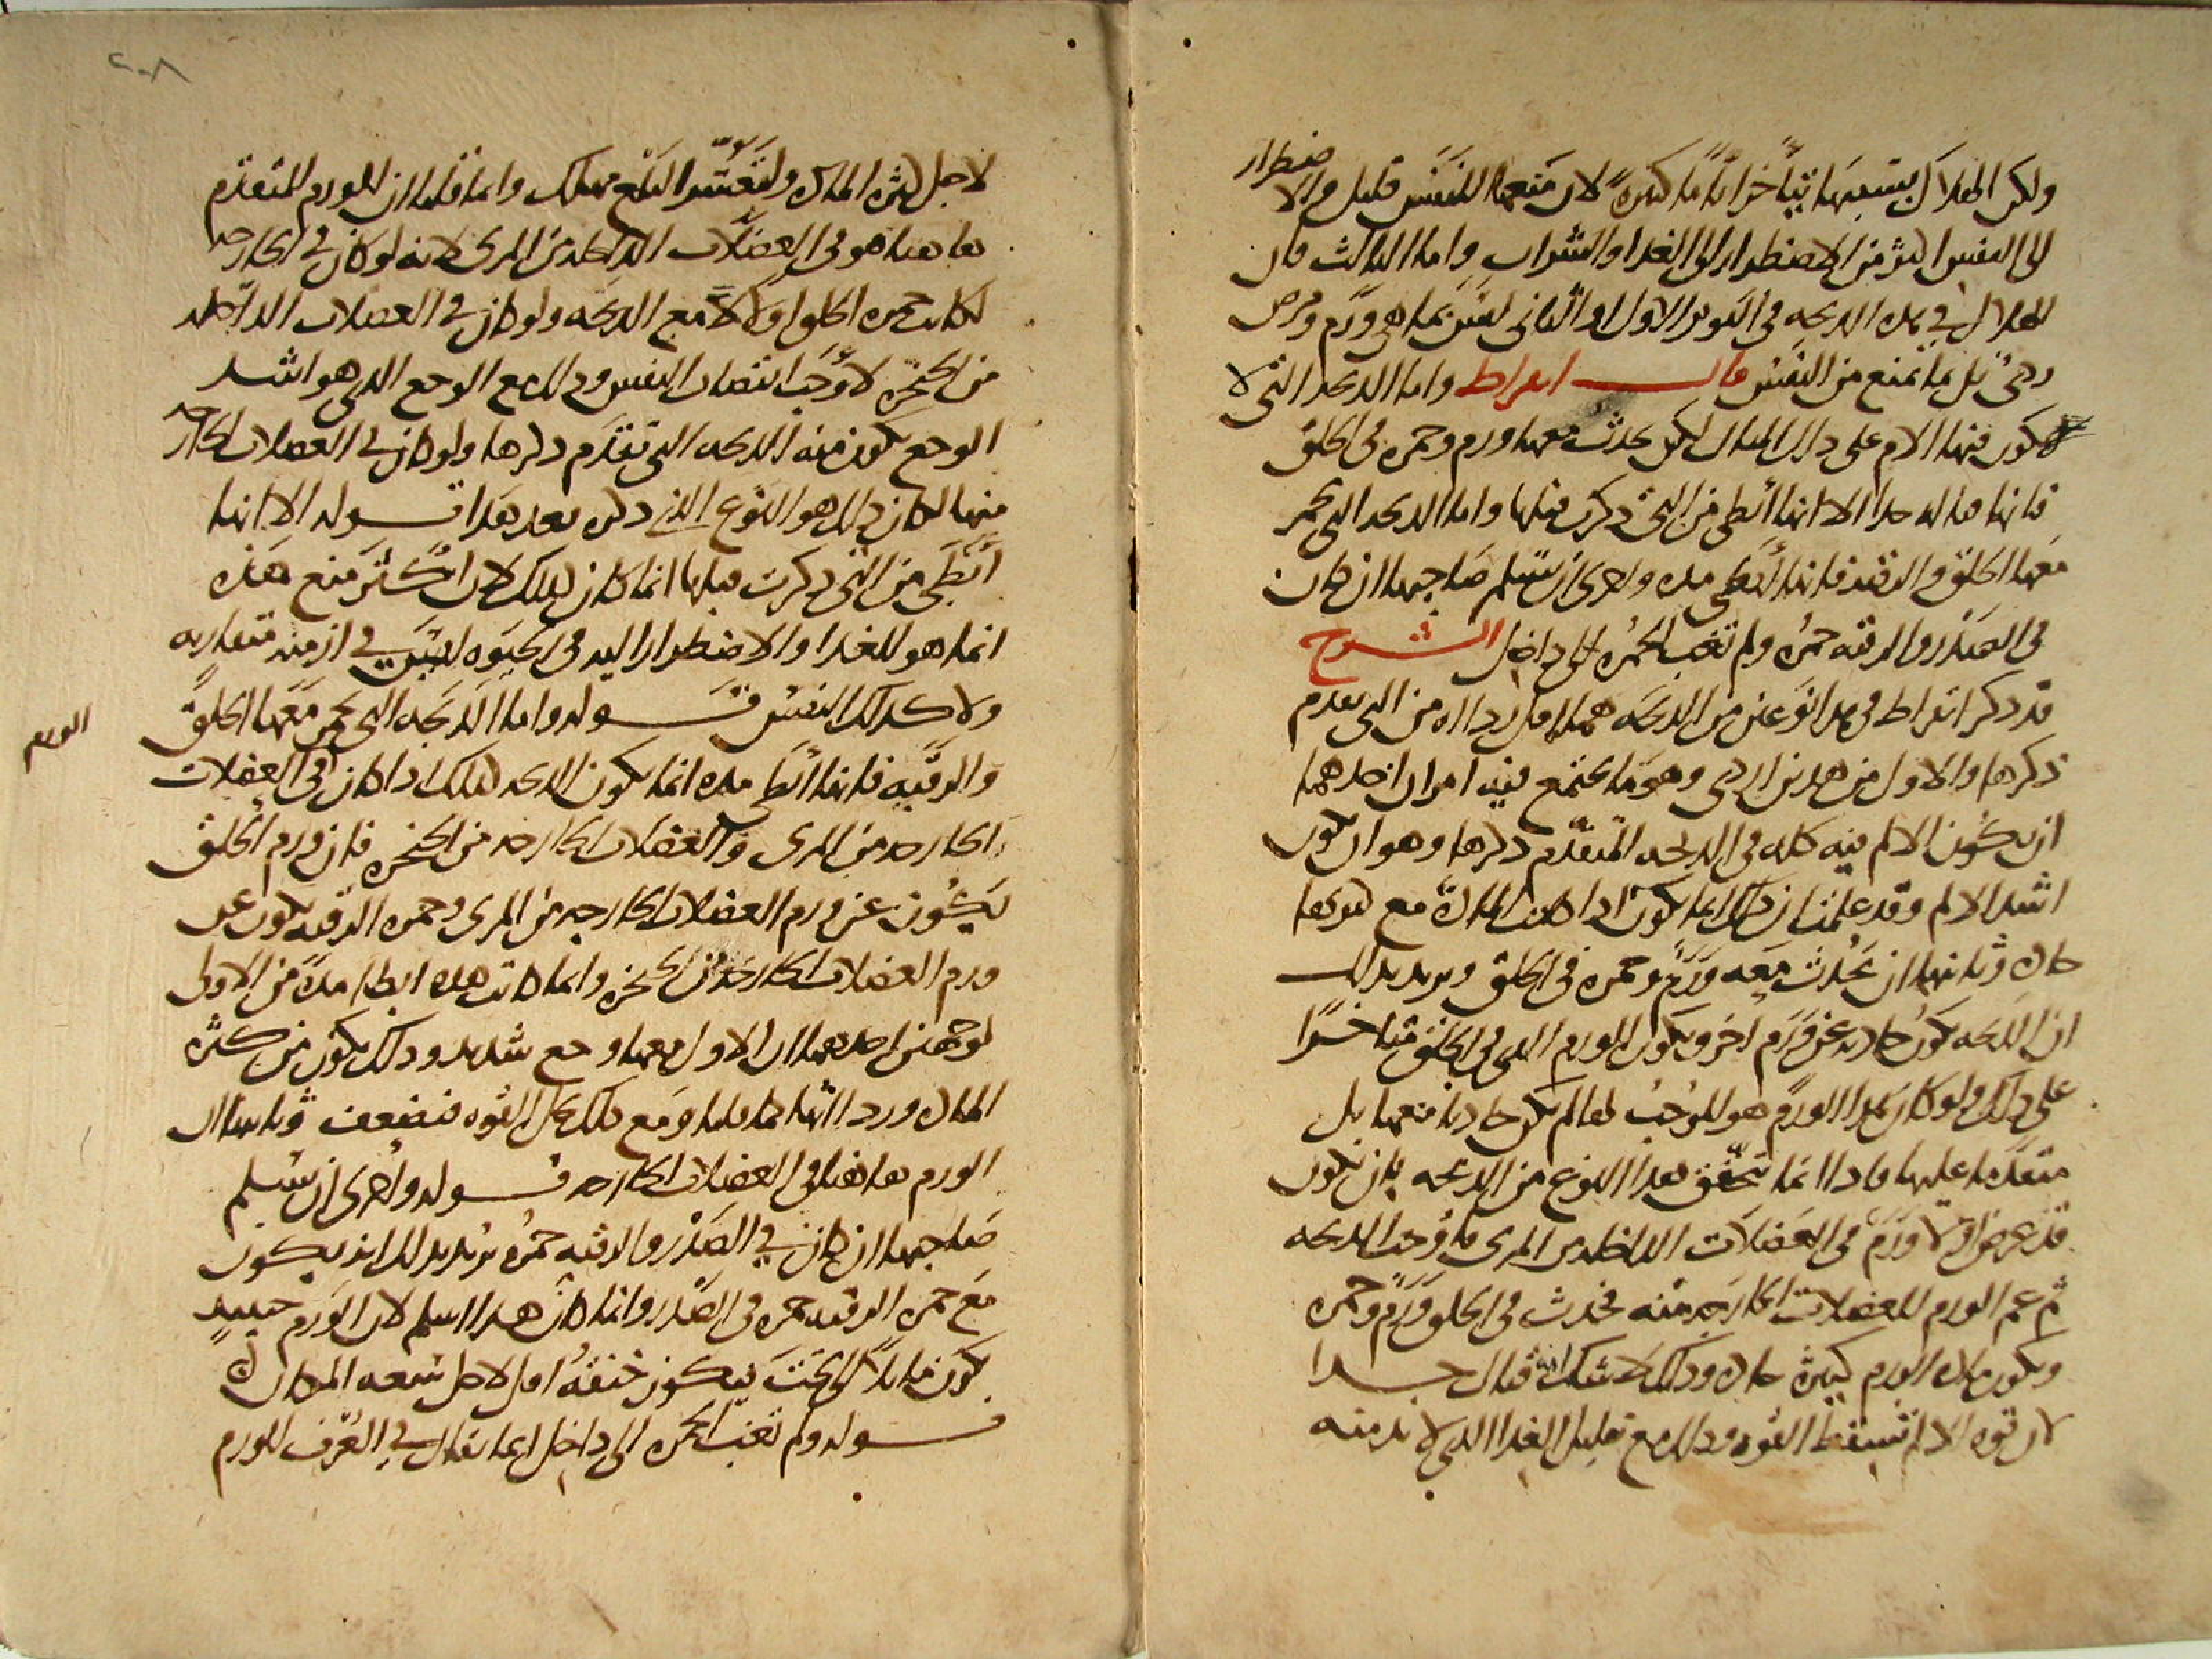 ولكن الهلاك بسببها يتأخر اياما كثيرة لان منعها للنفس قليل والا
ضطرار
الى النفس اكثر من الاضطرار الى الغذا والشراب واما الثالث فان
الهلاك في هذه الذبحة في اليوم الاول او الثانى ليس بما هى ورم ومرض
ردئ بل بما تمنع من النفس قال ابقراط واما الذبحة التى لا
يكون فيها الالم على ذلك المثال لكن يحدث معها ورم وحمرة فى الحلق
فانها قتاله جدا الا انها ابطى من التى ذكرت قبلها واما الذبحة التى تحمر
معها الحلق والرقبة فانها ابطى مدة واحرى ان يسلم صاحبها ان كان
فى الصدر والرقبة حمرة ولم تغب الحمرة الى داخل الشرح
قد ذكر ابقراط فى هذا نوعين من الذبحة هما اقل رداءة من التى تقدم
ذكرها والاول من هذين اردى وهو ما يجتمع فيه امران احدهما
ان يكون الالم فيه كله فى الذبحة المتقدم ذكرها وهو ان يكون
اشد الالم وقد علمت ان ذلك انما يكون اذا كانت المادة مع كثرتها
حادة وثانيهما ان يحدث معه ورم وحمرة فى الحلق ويريد بذلك
ان الذبحة تكون حادثة عن ورم اخر ويكون الورم الذى فى الحلق متاخرا
على ذلك ولو كان هذا الورم هو الموجب لها لم يكن حادثا معها بل
متقدما عليها فاذا انما يتحقق هذا النوع من الذبحة بان يكون
قد عرض اولا ورم فى العضلات الداخلة من المرى فاوجب الذبحة
ثم عم الورم للعضلات الخارجة منه فحدث فى الحلق ورم وحمرة
وتكون مادة الورم كثيرة حادة وذلك لا شك انه قتال جدا
لان قوة الالم تسقط القوة وذلك مع تقليل الغذا الذى لا بد منه
٢٠٨
لاجل كثرة المادة ولتعسر البلع مهلك وانما قلنا ان الورم المتقدم
هاهنا هو فى العضلات الداخلة من المرى لانه لو كان فى الخارجة
لكانت حمرة الحلق اولا مع الذبحة ولو كان فى العضلات الداخلة
من الحنجرة لاوجب انتصاب النفس وذلك مع الوجع الذى هو اشد
الوجع تكون منه الذبحة التى تقدم ذكرها ولو كان فى العضلات الخارجة
منها لكان ذلك هو النوع الذى ذكره بعد هذا قوله الا انها
ابطى من التى ذكرت قبلها انما كان كذلك لان اكثر منع هذه
انما هو للغذا والاضطرار اليه فى الحيوة ليس فى ازمنة متقاربة
ولا كذلك النفس قوله واما الذبحة التى تحمر معها الحلق
والرقبة فانها ابطى مدة انما تكون الذبحة كذلك اذا كان فى العضلات
الورم
الخارجة من المرى والعضلات الخارجة من الحنجرة فان ورم الحلق
يكون عن ورم العضلات الخارجة من المرى وحمرة الرقبة تكون عن
ورم العضلات الخارجة من الحنجرة وانما كانت هذه ابطا مدة من الاولى
لوجهين احدهما ان الاول معها وجع شديد وذلك يكون من كثرة
المادة ورداءتها كما قلنا ومع ذلك يحل القوة فتضعف وثانيهما ان
الورم هاهنا فى العضلات الخارجة قوله واحرى ان يسلم
صاحبها ان كان فى الصدر والرقبة حمرة يريد بذلك انه يكون
مع حمرة الرقبة حمرة فى الصدر وانما كان هذا اسلم لان الورم حينيذ
يكون مايلا الى تحت فيكون خنقه اقل لاجل سعة المكان
قوله ولم تغب الحمرة الى داخل انما يقال فى العرف للورم